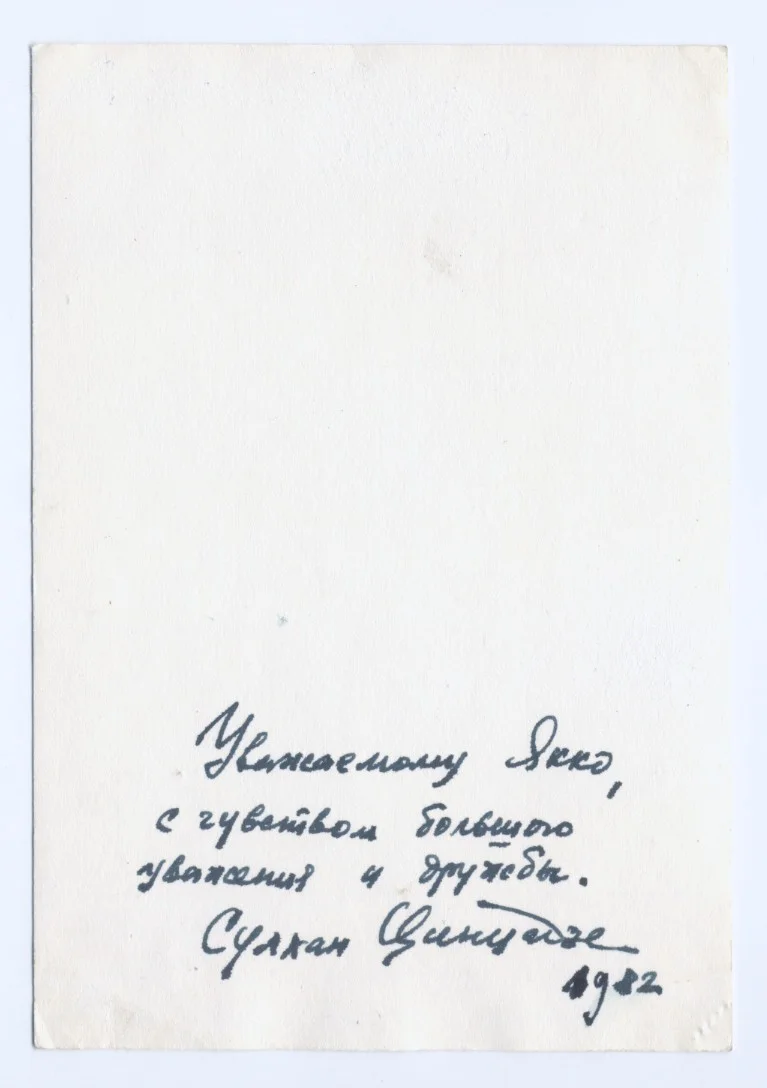 Уважаемому Якко,
с чувством большого
уважения и дружбы.
Сулхан Цинцадзе
1982